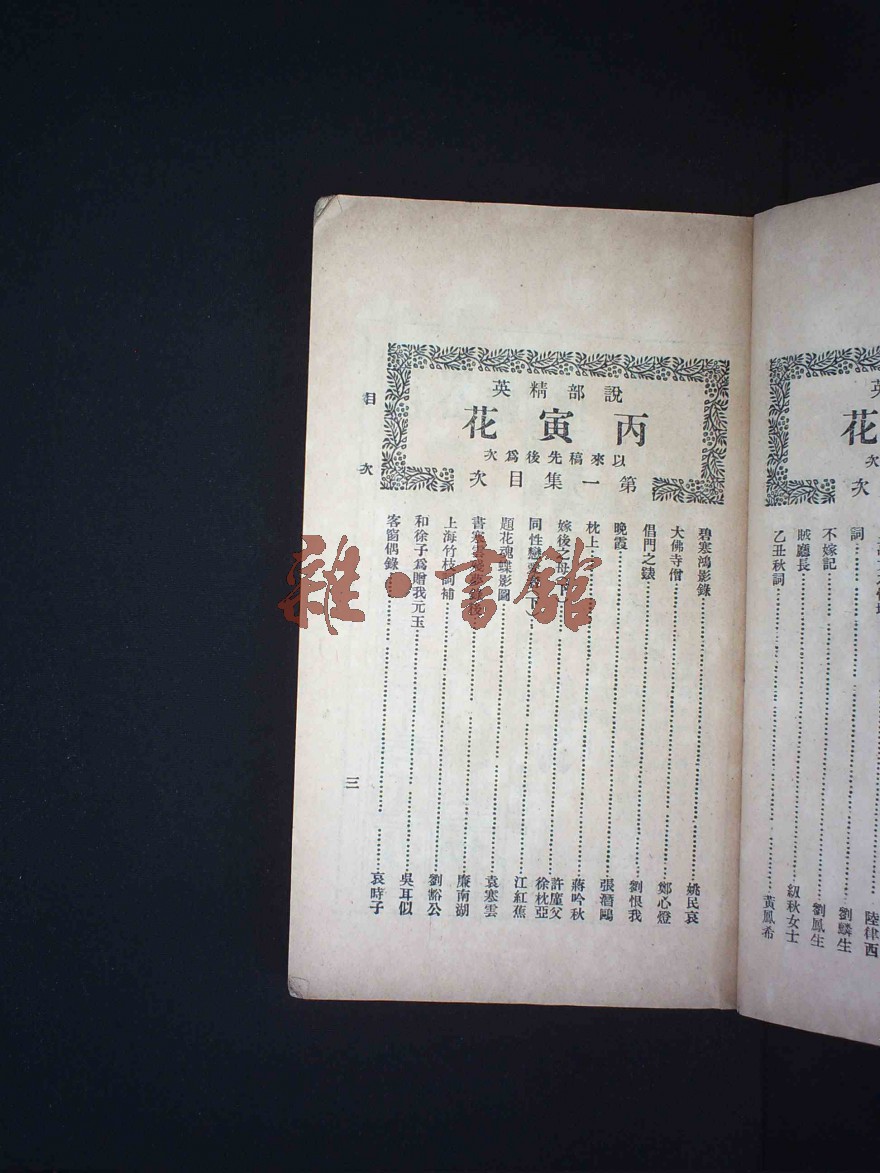 陸律西
詞 劉麟生
不嫁記 劉鳳生
賊廳長 紉秋女士
乙丑秋詞 黃鳳希
說部精英
丙寅花
以來稿先後爲次
第一集目次
碧寒鴻影錄 姚民哀
大佛寺僧 鄭心燈
倡門之錶 劉恨我
晚霞 張潛鷗
枕上 蔣吟秋
嫁後之母(下) 許廑父 徐枕亞
同性戀愛者(下) 江紅蕉
題花魂蝶影圖 袁寒雲
書寒雲 後 廉南湖
上海竹枝詞補 劉豁公
和徐子爲贈我元玉 吳耳似
客窗偶錄 哀時子
目次
三
雜·書館